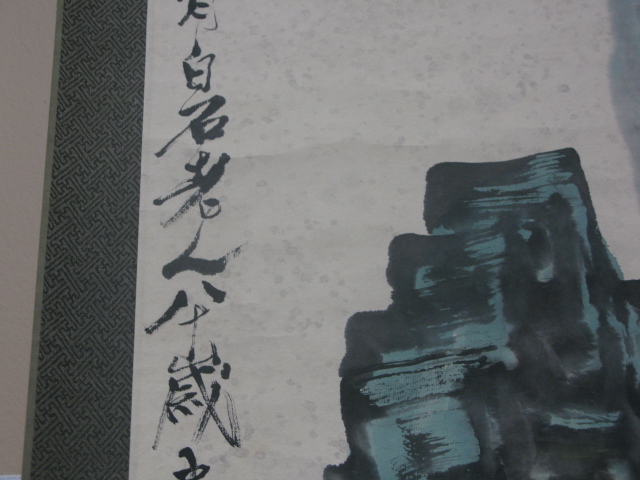 白石老人八十歲